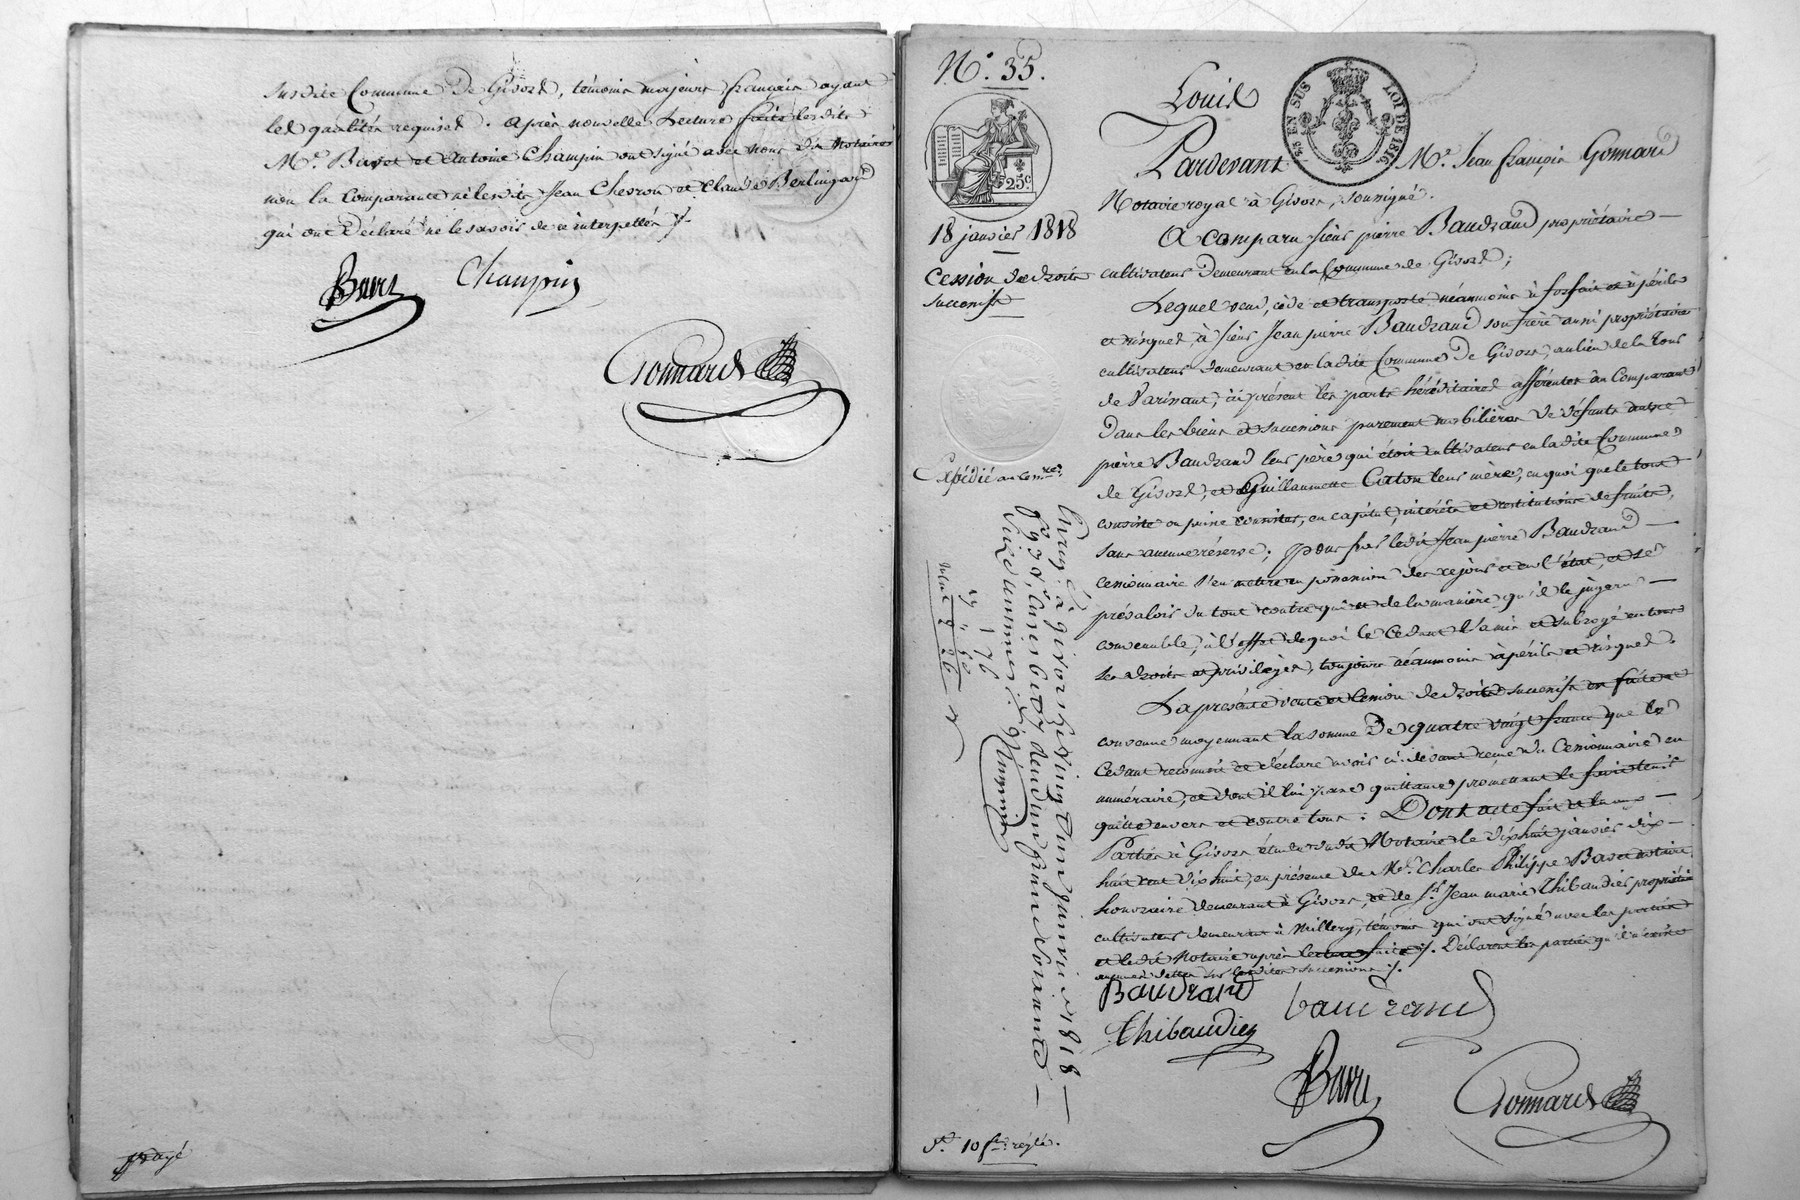 susdite Commune de Givors, témoins majeurs français ayant
les qualités requises. Après nouvelle Lecture faite lesdits
Mrs. Bavet et Antoine Champin ont signé avec nous dit Notaire
non la Comparante ni lesdits Jean Chevron et Claude Berlingard
qui ont Déclaré ne le savoir de ce interpellés ./.
Champin
Gonnard
N°. 35.
25c
EN SUS
LOI DE 1816
18 janvier 1818
Cession de droits
successifs
Expédié au
Louis
Pardevant Me. Jean François Gonnard
Notaire royal à Givors, soussigné.
A comparu sieur pierre Baudrand propriétaire
cultivateur demeurant en la Commune de Givors;
Lequel vend, cède et transporte néanmoins à forfait et à périls
et risques, à sieur Jean pierre Baudrand son frère aussi propriétaire
cultivateur demeurant en ladite Commune de Givors, au lieu de la Tour
de Varissant, ci présent les parts héréditaires afférentes au Comparant
dans les biens et successions purement mobilières de défunts autre
pierre Baudrand leur père qui étoit cultivateur en ladite Commune
de Givors, et Guillaumette Coton leur mère, en quoi que le tout
consiste ou puisse consister, en capital, intérêts et restitutions de fruits,
sans aucune réserve; pour par ledit Jean pierre Baudrand
cessionnaire s'en mettre en possession dès ce jour et en l'état, et se
prévaloir du tout contre qui et de la manière qu'il le jugera
convenable, à l'effet de quoi le Cédant l'a mis et subrogé en tous
ses droits et privilèges, toujours néanmoins à périls et risques.
La présente vente et Cession de droits successifs est faite et
convenue moyennant la somme De quatre vingt francs que le
Cédant reconnoit et déclare avoir ci-devant reçue du Cessionnaire en
numéraire, et dont il lui passe quittance promettant le faire tenir
quitte envers et contre tous. Dont acte fait et lu aux
Parties à Givors étude dudit Notaire le dixhuit janvier dix
huit cent dix huit, en présence de Me. Charles Philippe Bavet notaire
honoraire demeurant à Givors, et de Sr. Jean marie Thibaudier propriétaire
cultivateur demeurant à Millery, témoins qui ont signé avec les parties
et ledit Notaire après lecture faite ./. Déclarent les parties qu'il n'existe
aucunes dettes sur lesdites successions ./.
Baudrand baudrand
Thibaudier
Gonnard
Enreg. à givors le vingt un janvier 1818